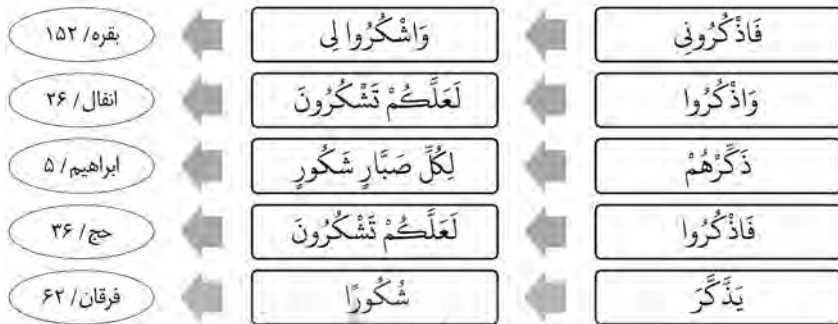 فَاذْكُرُونِی وَاشْكُرُوا لِی بقره/ ۱۵۲
وَاذْكُرُوا لَعَلَّكُمْ تَشْكُرُونَ انفال/ ۲۶
ذَكِّرْهُمْ لِكُلِّ صَبَّارٍ شَكُورٍ ابراهیم/ ۵
فَاذْكُرُوا لَعَلَّكُمْ تَشْكُرُونَ حج/ ۳۶
یَذَّكَّرَ شُكُورًا فرقان/ ۶۲